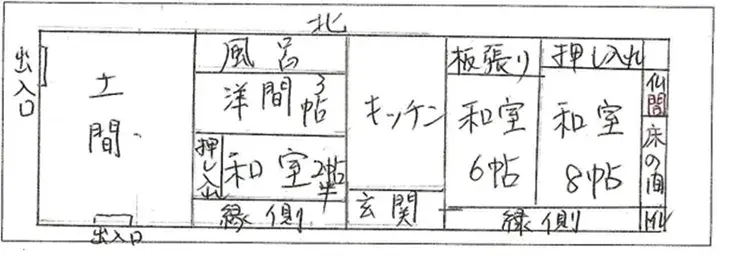 北
出入口
土間
出入口
風呂
洋間 3帖
押し入れ
和室 2帖半
縁側
キッチン
玄関
板張り
和室
6帖
押し入れ
和室
8帖
縁側
仏間
床の間